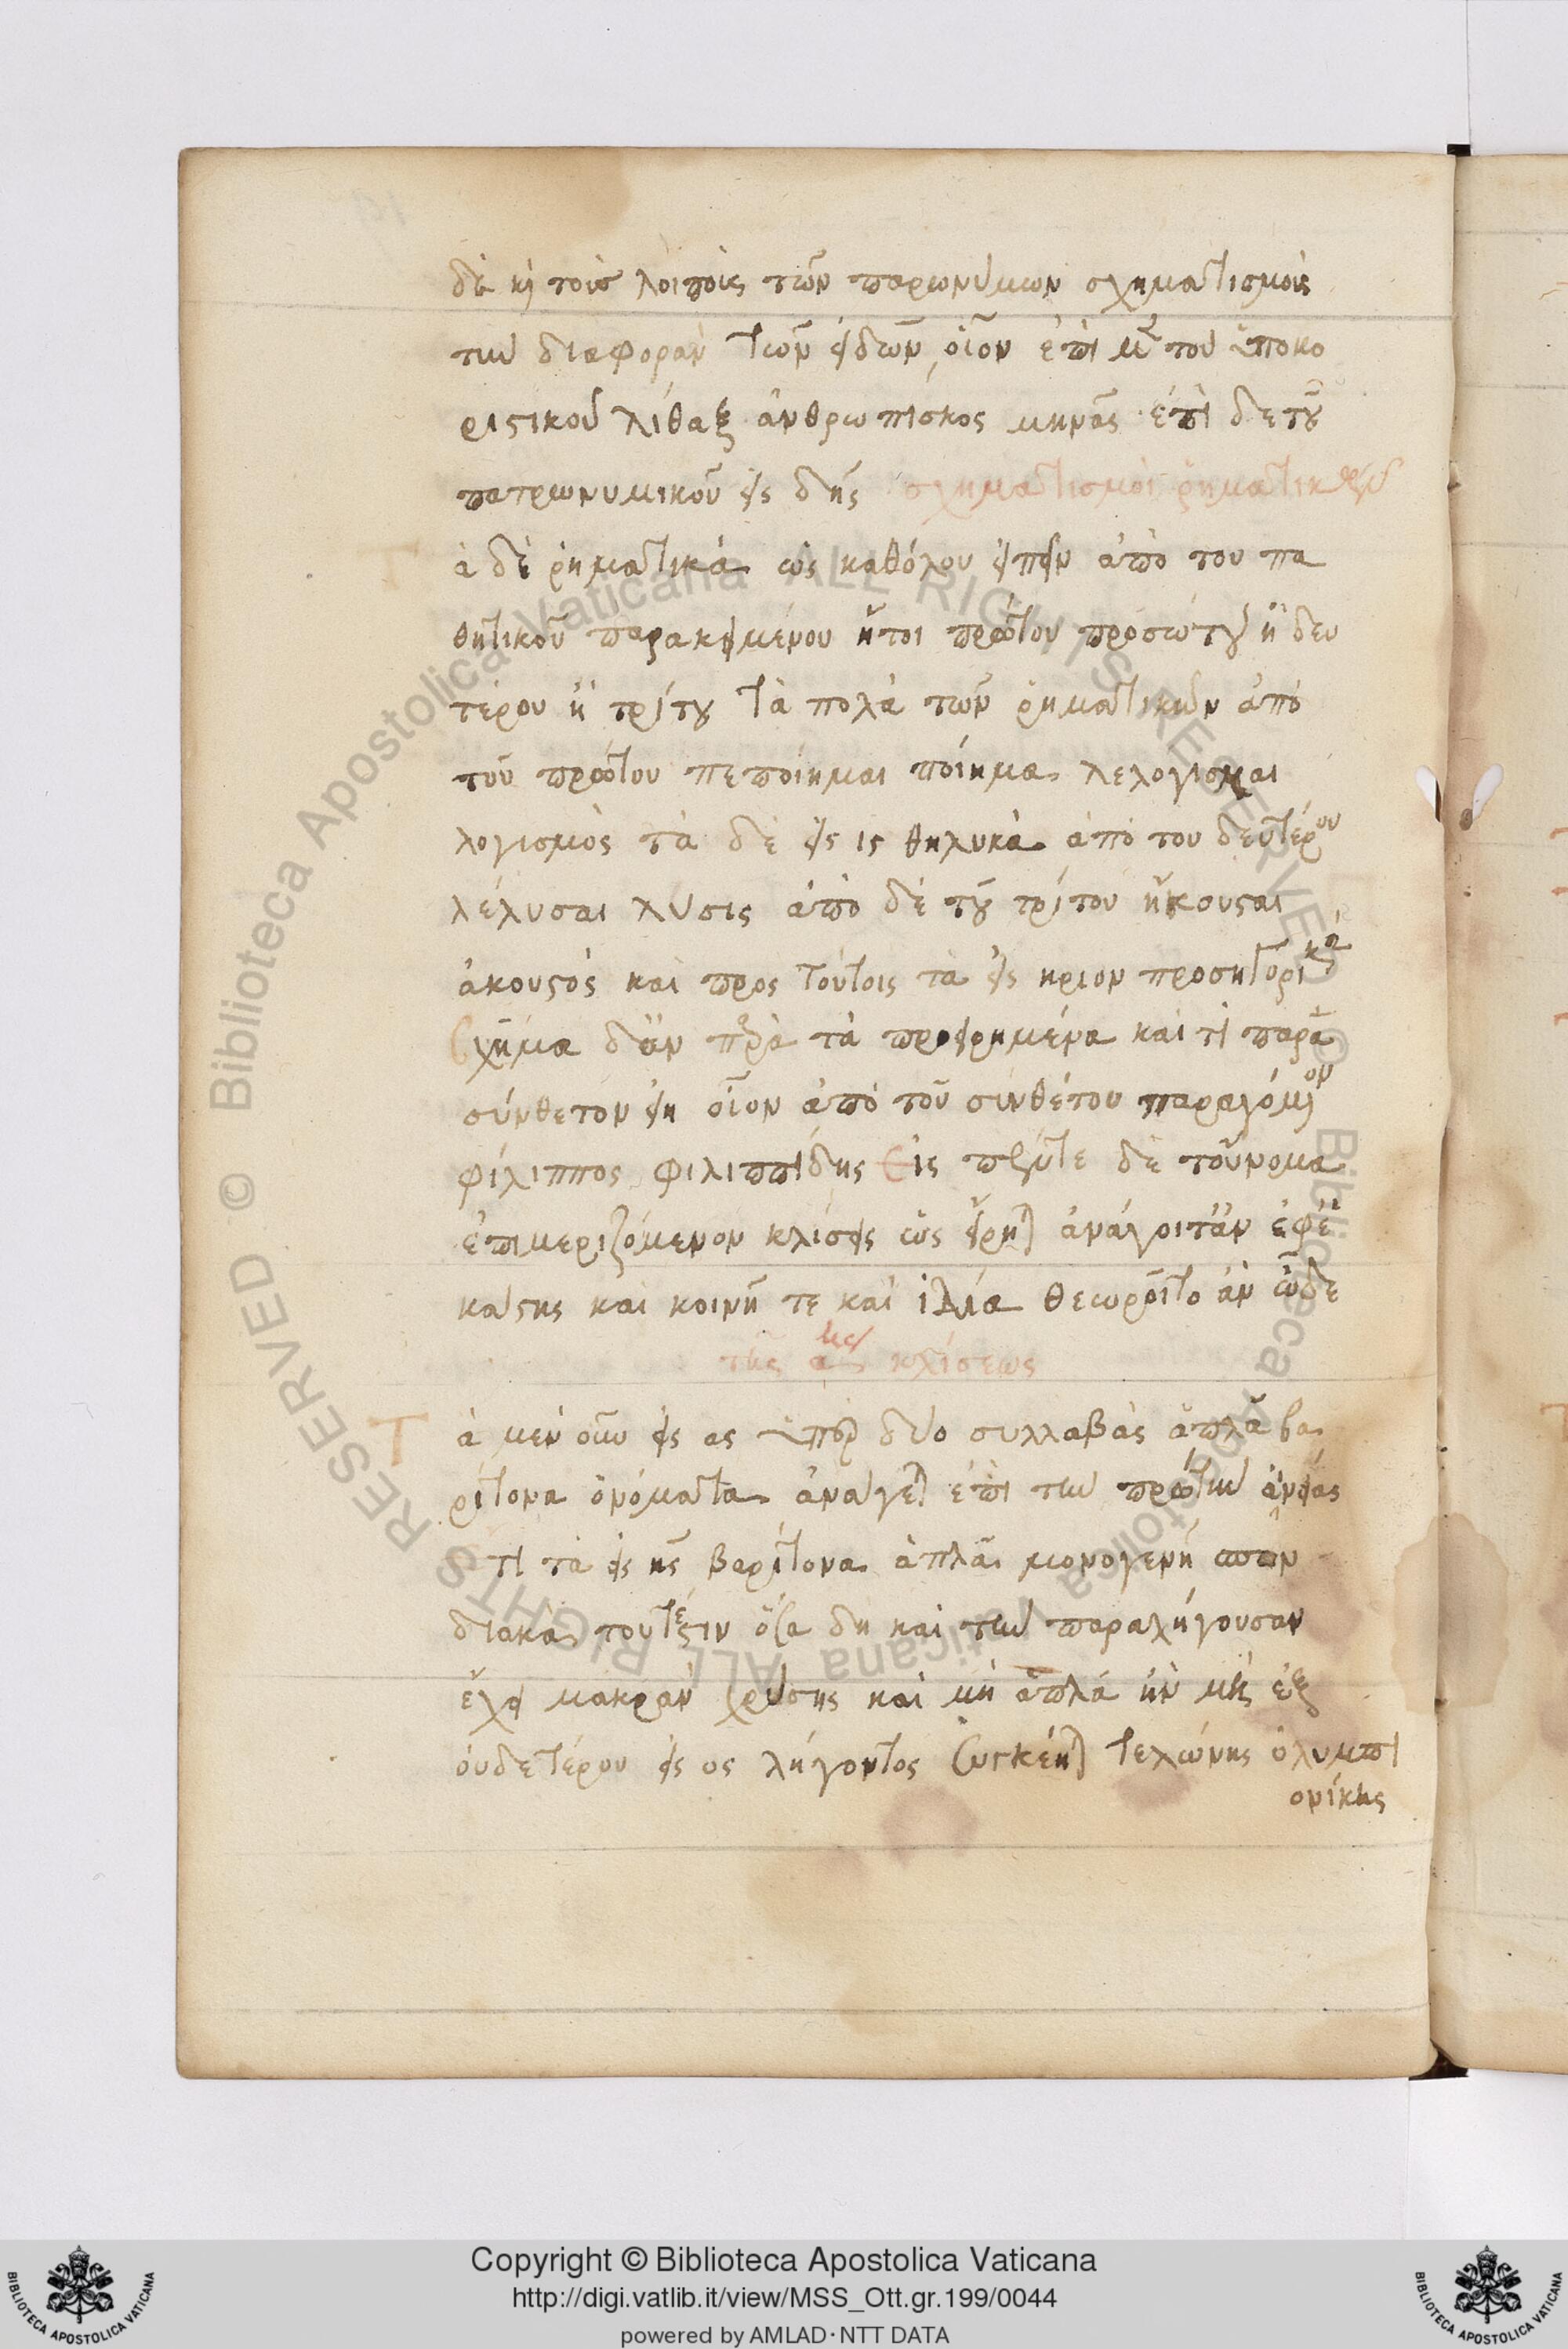 δὲ κὶ τοῖς λοιποῖς τῶν παρωνύμων σχηματισμοῖς
τὴν διαφορὰν τῶν εἰδῶν, οἷον ἐπὶ μὲν τοῦ ὑποκο
ριστικοῦ λίθαξ ἀνθρωπίσκος μηνᾶς ἐπὶ δε τοῦ
πατρωνυμικοῦ εἰς δης σχηματισμοὶ ῥηματικῶν
ὰ δὲ ῥηματικὰ ὡς καθόλου εἰπεῖν ἀπὸ του πα
θητικοῦ παρακειμένου ἤτοι πρώτου προσώπου ἢ δευ
τέρου ἢ τρίτου τὰ πολὰ τῶν ῥηματικῶν ἀπὸ
τοῦ πρώτου πεποίημαι ποίημα λελογισμαι
λογισμὸς τὰ δὲ εἰς ις θηλυκὰ ἀπὸ του δευτέρου
λέλυσαι λύσις ἀπὸ δὲ τοῦ τρίτου ἤκουσται
ἀκουστὸς καὶ προς τούτοις τὰ εἰς ηριον προσηγορικά
Σχῆμα δ' ἂν παρὰ τὰ προειρημένα καί τι παρὰ
σύνθετον εἴη οἷον ἀπὸ τοῦ συνθέτου παραγόμενον
φίλιππος φιλιππίδης Εἰς πέντε δὲ τοὔνομα
ἐπιμεριζόμενον κλίσεις ὡς εἴρηται ἀνάγοιτ' ἂν ἐφ' ἑ
κάστης καὶ κοινῇ τε καὶ ἰδία θεωροῖτο ἂν ὧδε
τῆς α´ης κλίσεως
Τ
ὰ μὲν οὖν εἰς ας ὑπὲρ δύο συλλαβὰς ἁπλᾶ βα
ρύτονα ὀνόματα ἀνάγεται ἐπὶ τὴν πρώτην αἰνείας
ἔτι τὰ εἰς ης βαρύτονα ἁπλᾶ μονογενῆ
διακὰ τουτέστιν ὅσα δὴ καὶ τὴν παραλήγουσαν
ἔχει μακρὰν χρύσης καὶ μὴ ἁπλᾶ ἢν μὴ ἐξ
οὐδετέρου εἰς ος λήγοντος συγκέηται τελώνης ὀλυμπι
ονίκης
Copyright © Biblioteca Apostolica Vaticana
http://digi.vatlib.it/view/MSS_Ott.gr.199/0044
powered by AMLAD·NTT DATA